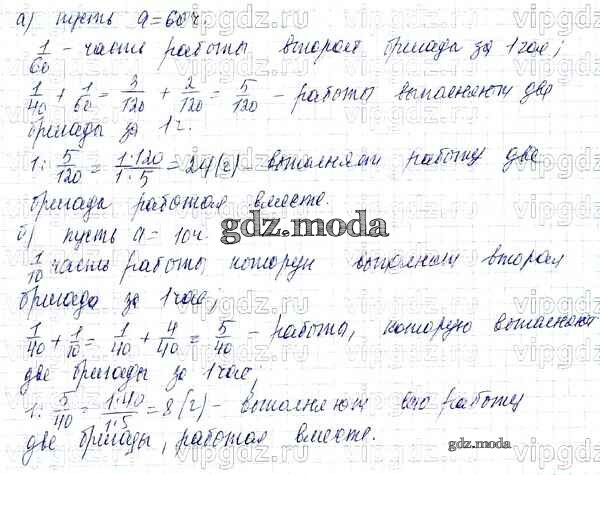 а) пусть a = 60 ч.
1/60 - часть работы вторая бригада за 1 час;
1/40 + 1/60 = 3/120 + 2/120 = 5/120 - работы выполняют две
бригады за 1 ч.
1 : 5/120 = 1·120/1·5 = 24 (ч) - выполняют работу две
бригады работая вместе.
б) пусть a = 10 ч.
gdz.moda
1/10 часть работы которую выполнит вторая
бригада за 1 час;
1/40 + 1/10 = 1/40 + 4/40 = 5/40 - работа, которую выполняют
две бригады за 1 час;
1 : 5/40 = 1·40/1·5 = 8 (ч) - выполняют всю работу
две бригады, работая вместе.
gdz.moda
vipgdz.ru